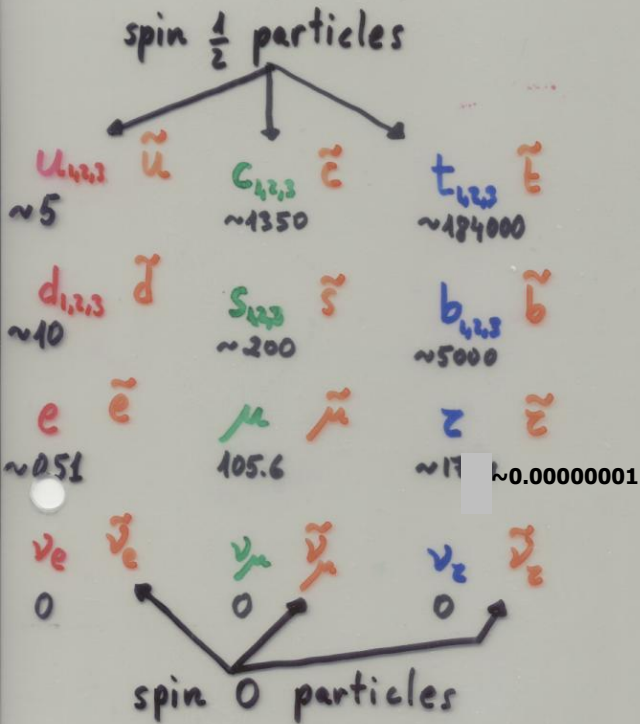 spin 1/2 particles
u1,2,3 ũ c1,2,3 c̃ t1,2,3 t̃
~5 ~1350 ~184000
d1,2,3 d̃ s1,2,3 s̃ b1,2,3 b̃
~10 ~200 ~5000
e ẽ μ μ̃ τ τ̃
~0.51 105.6 ~0.00000001
νe ν̃e νμ ν̃μ ντ ν̃τ
0 0 0
spin 0 particles